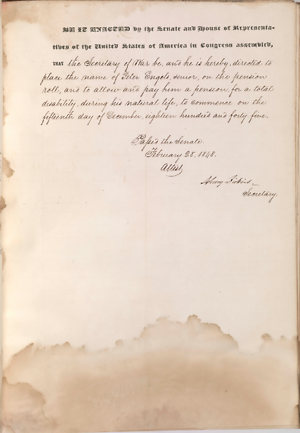 BE IT ENACTED by the Senate and House of Representa-
tives of the United States of America in Congress assembled,
THAT the Secretary of War be, and he is hereby, directed to
place the name of Peter Engels, senior, on the pension
roll, and to allow and pay him a pension for a total
disability, during his natural life, to commence on the
fifteenth day of December eighteen hundred and forty five.
Passed the Senate
February 28, 1848.
Attest,
Secretary.